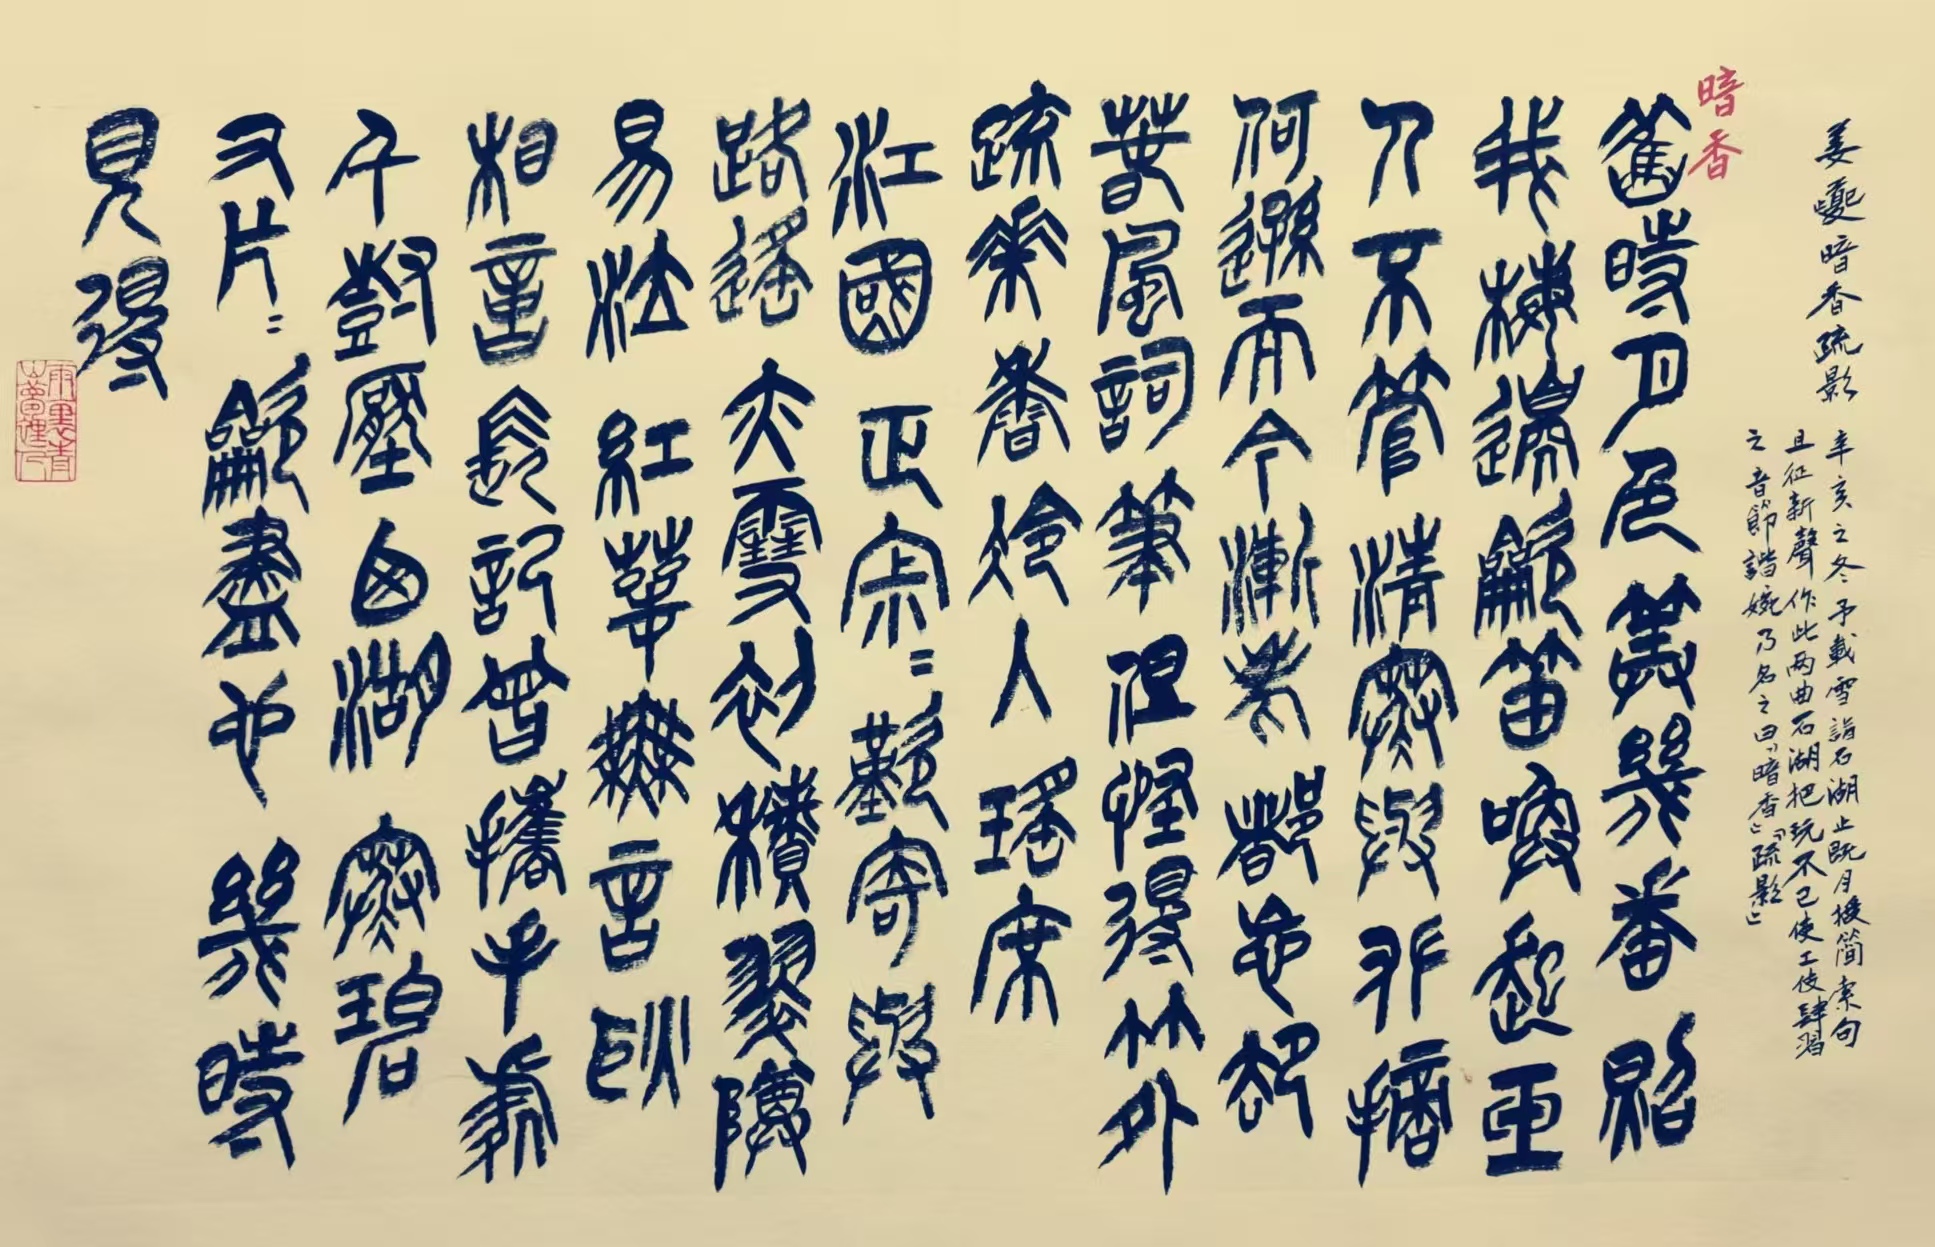 姜夔暗香疏影 辛亥之冬予載雪詣石湖止既月授簡索句
且征新聲作此两曲石湖把玩不已使工伎肄習
之音節諧婉乃名之曰「暗香」『疏影』
暗香
舊時月色算幾番照
我梅邊龡笛喚起玉
人不管清寒與攀摘
何遜而今漸老都忘却
春風詞筆但怪得竹外
疏花香冷入瑤席
江國正寂=歎寄與
路遙夜雪初積翠尊
易泣紅萼無言耿
相憶長記曾攜手處
千樹壓西湖寒碧
又片=龡盡也幾時
見得